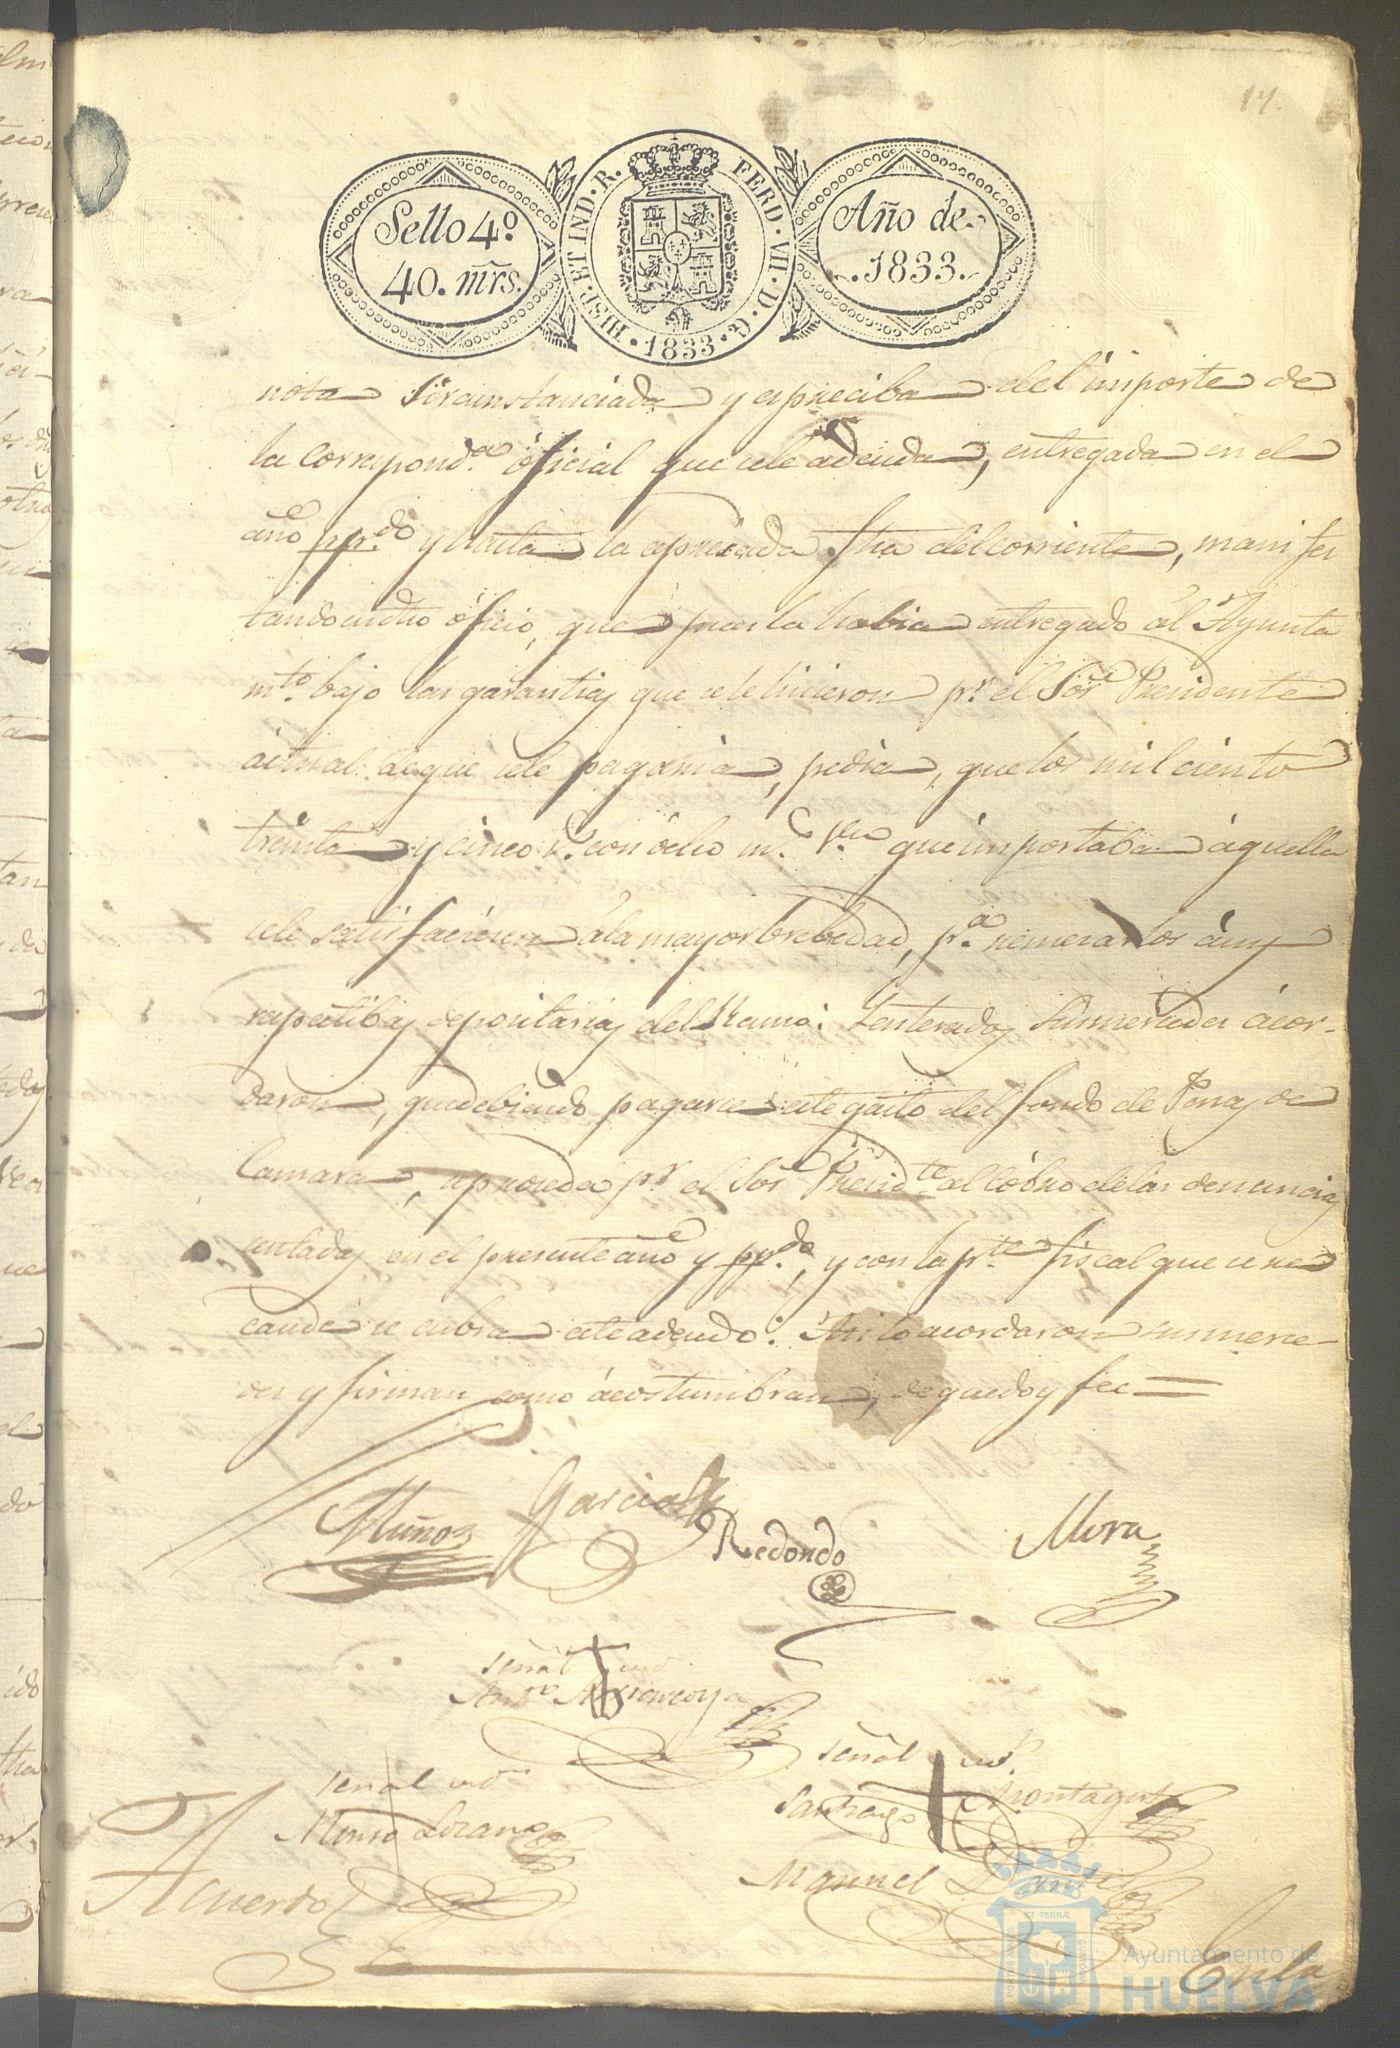 14.
Sello 4º.
40. mrs.
HISP. ET IND. R. FERD. VII. D. G. 1833.
Año de
1833.
nota sircunstanciada y apreciba del importe de
la correspond.ª oficial que sele adeuda, entregada en el
año pp.do y hasta la apreciada fha del corriente, manifes
tando en dho óficio, que pues la habia entregado ál Ayunta
mto bajo las garantias que sele hicieron pr. el Sor. Presidente
áctual de que sele pagaria, pedia, que los mil ciento
treinta y cinco rs. con ócho ms. vn que importaba áquella
sele satisfaciesen ála mayor brebedad, p.ª remesarlos á sus
respectibas depositarias del Ramo: Y enterados Sus mercedes ácor-
daron, que debiendo pagarse este gasto del fondo de Penas de
Camara, se proseda pr. el Sor. Presid.te al cóbro de las denuncias
sentadas en el presente año y pp.do, y con la p.te fiscal que se re
caude se cubra este adeudo: Asi lo acordaron sus merce
des y firman como ácostumbran, de que doy fee =
Muñoz Garcia Redondo Mora
señal de
Anto
señal de
Alonso Lozano
señal de
Santiago Montagut
Manuel
Acuerdo
En la
Ayuntamiento de
HUELVA